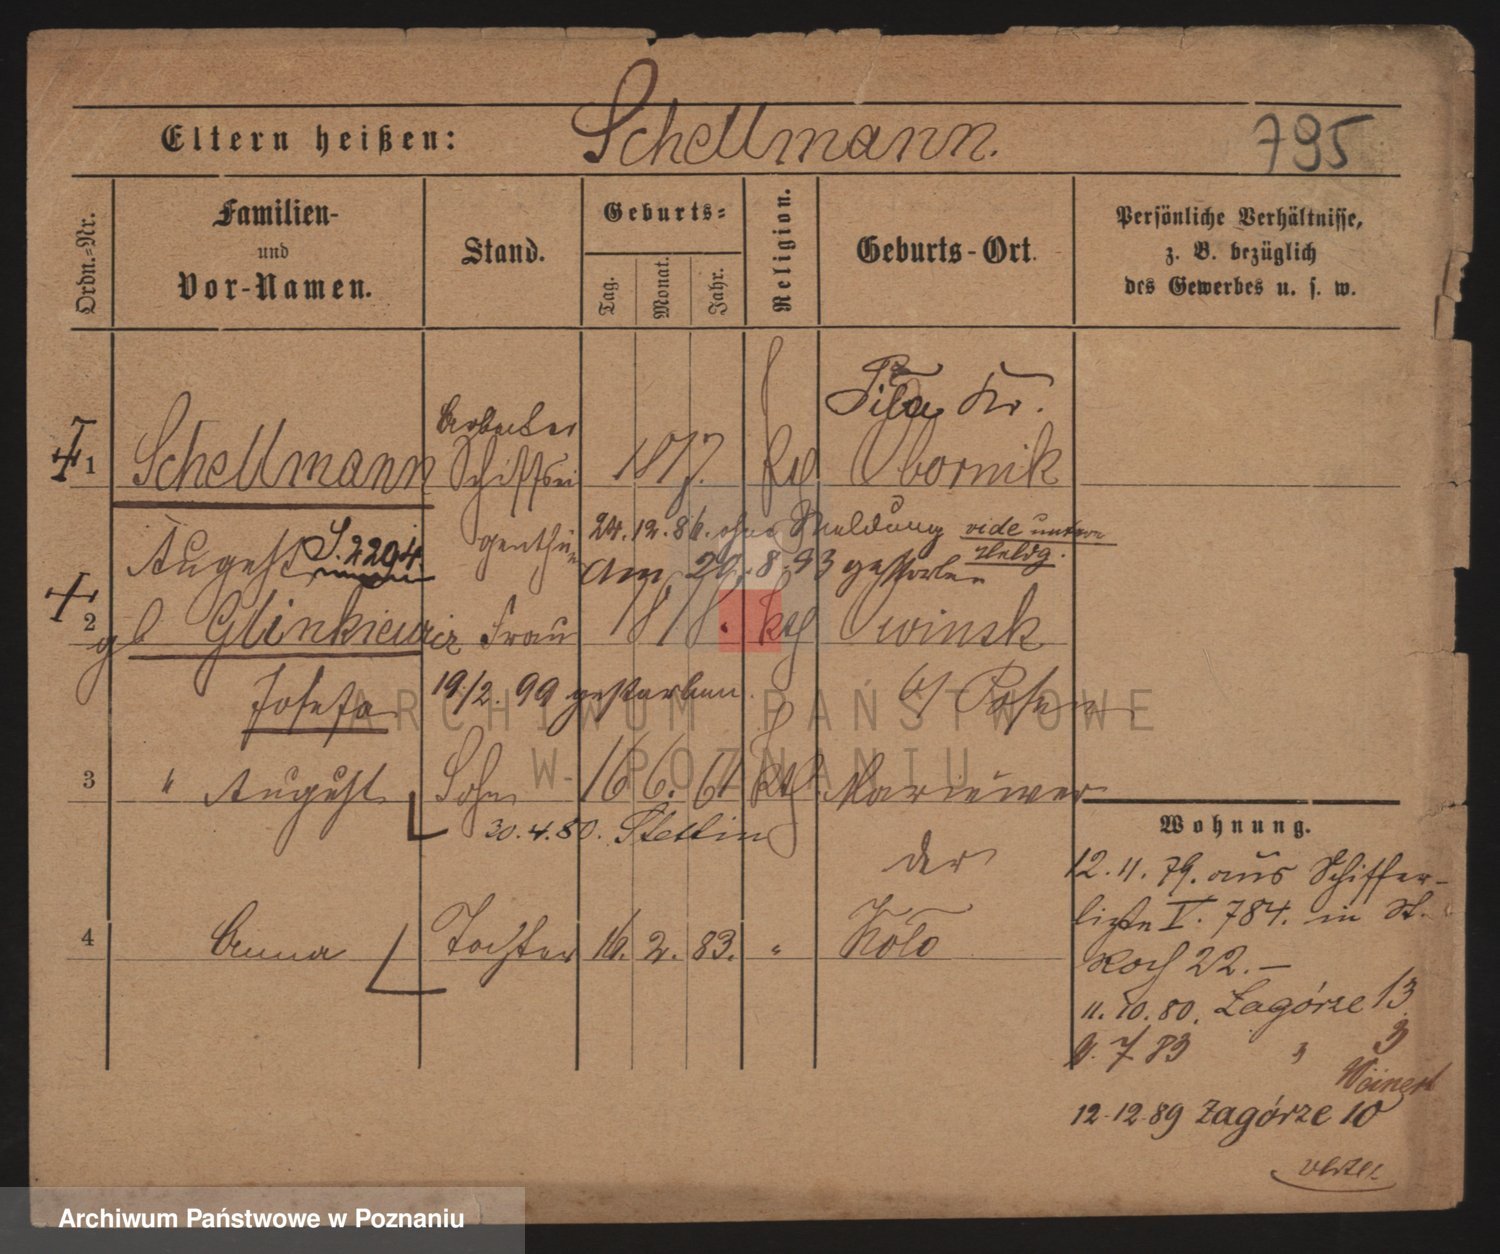 Eltern heißen: Schellmann. 795
Ordn.-Nr.
Familien-
und
Vor-Namen.
Stand.
Geburts-
Tag.
Monat.
Jahr.
Religion.
Geburts-Ort.
Persönliche Verhältnisse,
z. B. bezüglich
des Gewerbes u. s. w.
Arbeiter
1 Schellmann Schiffsei 1817. Obornik
genthü
August S. 2204.
24.12.86. ohne Meldung vide untere
Meldg.
am 29.8.93 gestorben
2 gb Glinkiewicz Frau 1818. kth Owinsk
Josefa 19/2.99 gestorben. b/ Posen
3 " August Sohn 16 6. 61 kth. Marienwer
30.4.80. Stettin
der
4 Anna Tochter 16. 2. 83. " Kolo
Wohnung.
12.11.79. aus Schiffer-
liste V. 784. in St.
Roch 22.—
11.10.80. Zagórze 13
9.7.83 " 3
12.12.89 Zagórze 10
ARCHIWUM PAŃSTWOWE
W POZNANIU
Archiwum Państwowe w Poznaniu